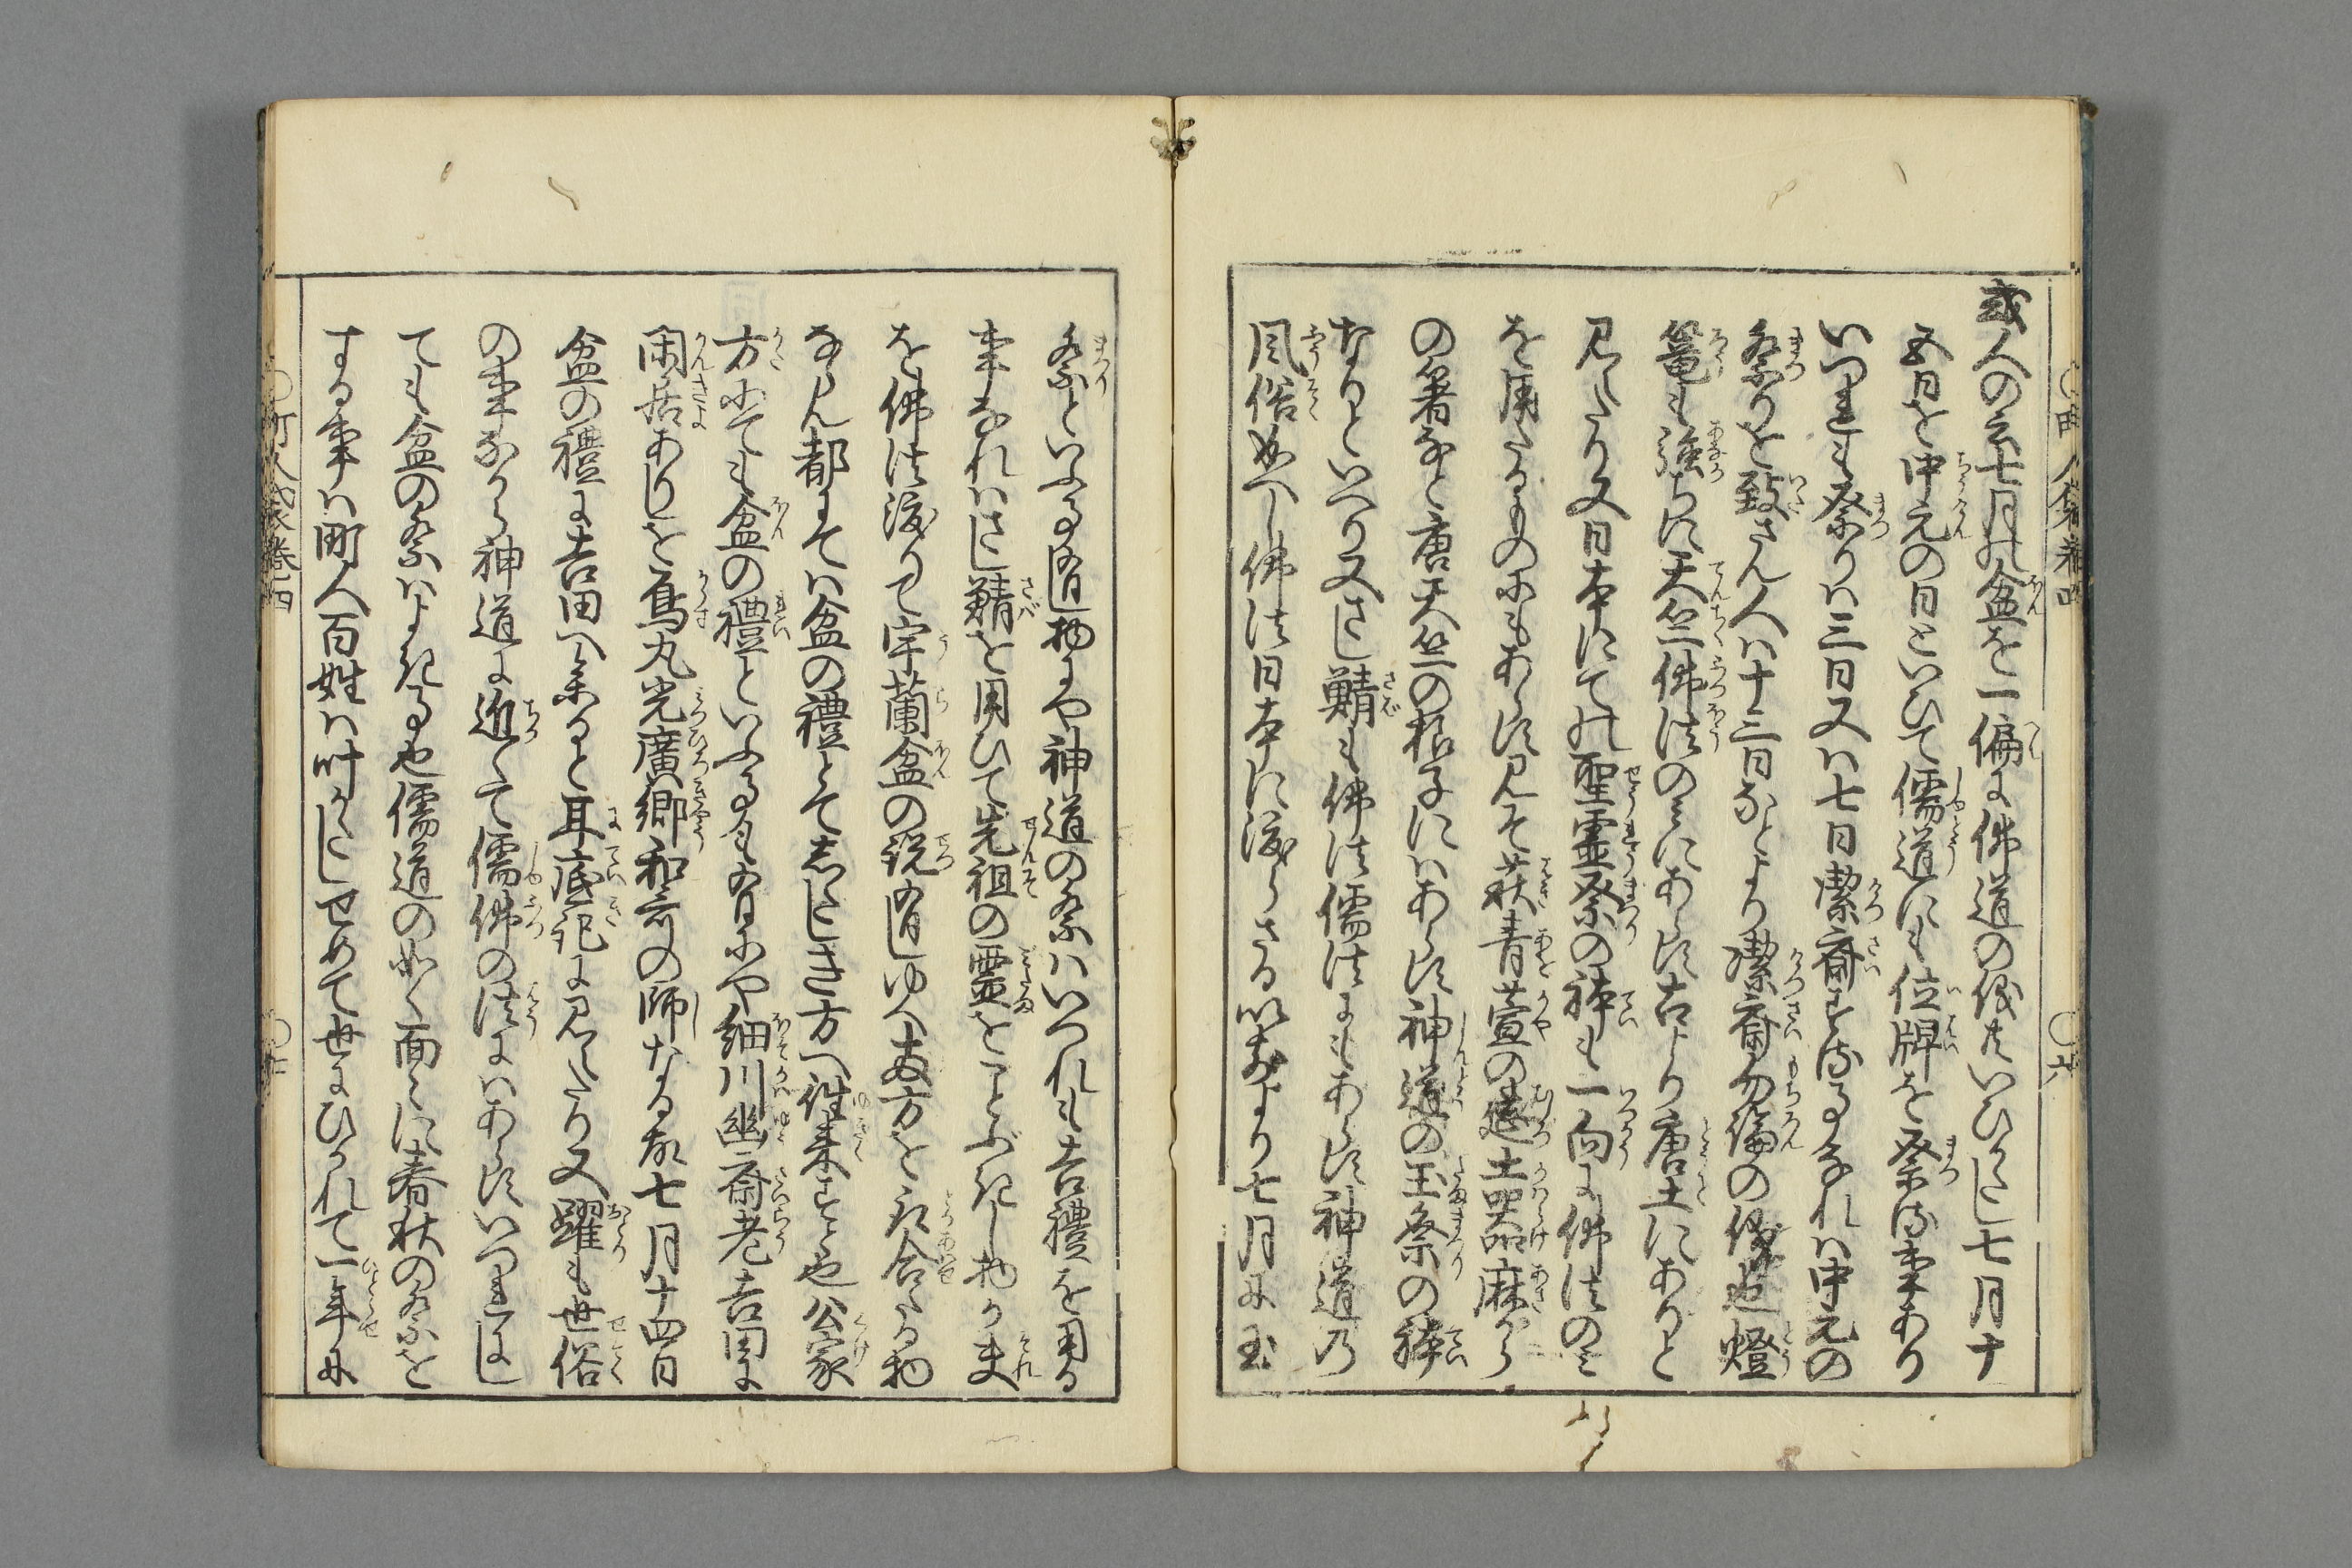 町人嚢卷四
或人の云七月の盆を一偏に佛道の儀共いひがたし七月十
五日を中元の日といひて儒道にも位牌を祭る事あり
いつれも祭りハ三日又ハ七日潔斎する事なれハ中元の
祭りを致さん人ハ十三日なとより潔斎勿論の儀也燈
篭も強ちに天竺佛法のミにあらす古より唐土にありと
見へたり又日本にての聖霊祭の体も一向に佛法のミ
を用たるものにもあらす見て萩青萱の莚土器麻から
の箸など唐天竺の様子にハあらす神道の玉祭の体
なりといへり又さし鯖も佛法儒法にもあらす神道乃
風俗なへし佛法日本に渡らさる以前より七月に玉
祭といふ事有し物にや神道の祭ハいつれも吉禮を用る
事なれハさし鯖を用ひて先祖の霊をことぶきし物か夫
を佛法渡りて宇蘭盆の説有しゆへ両方を取合たる物
ならん都にてハ盆の禮とてしたしき方へ徃来すと也公家
方にても盆の禮といふ事も有にや細川幽斎老吉田に
閑居ありしを烏丸光廣卿和哥の師なる故七月十四日
盆の禮に吉田へ来ると耳底記に見へたり又躍も世俗
の事なから神道に近くて儒佛の法にハあらすいつれにし
ても盆の祭ハよき事也儒道の如く面々に春秋の祭を
する事ハ町人百姓ハ叶かたしせめて世にひかれて一年に
町人嚢卷四